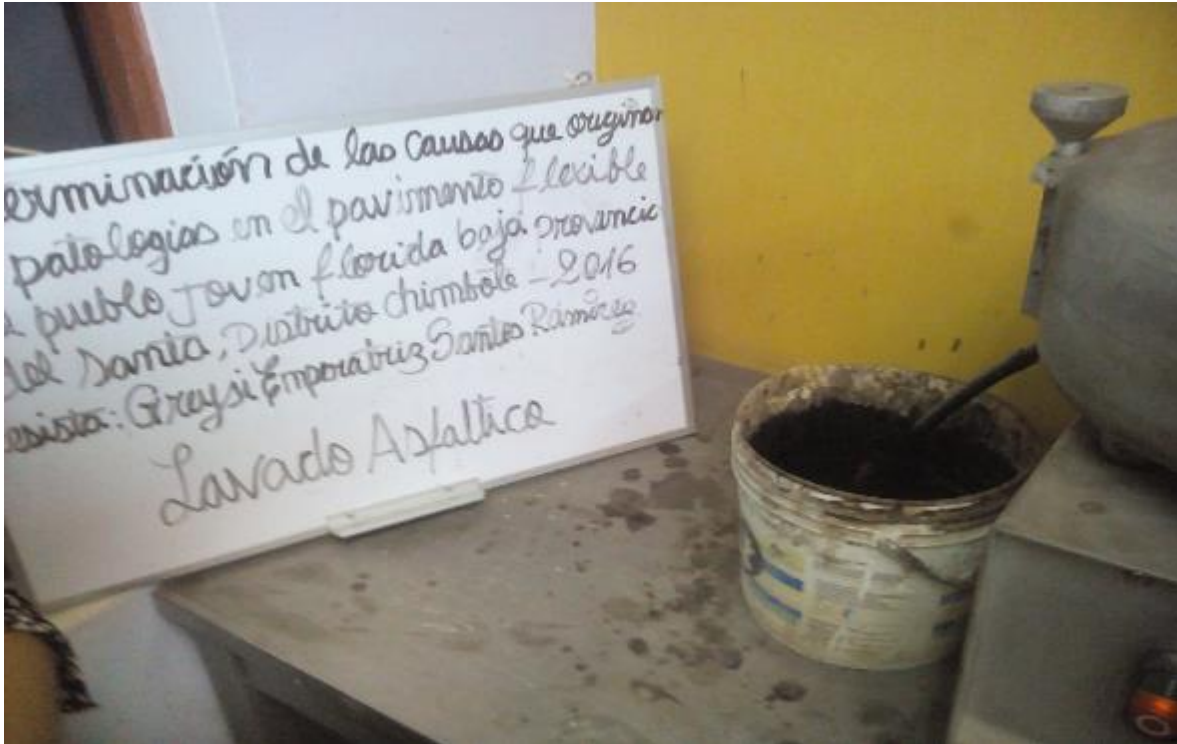 erminación de las causas que originan
patologias en el pavimento flexible
pueblo joven florida baja provincia
del santa, Distrito chimbote - 2016
esista: Greysi Emperatriz Santos Ramirez
Lavado Asfaltico